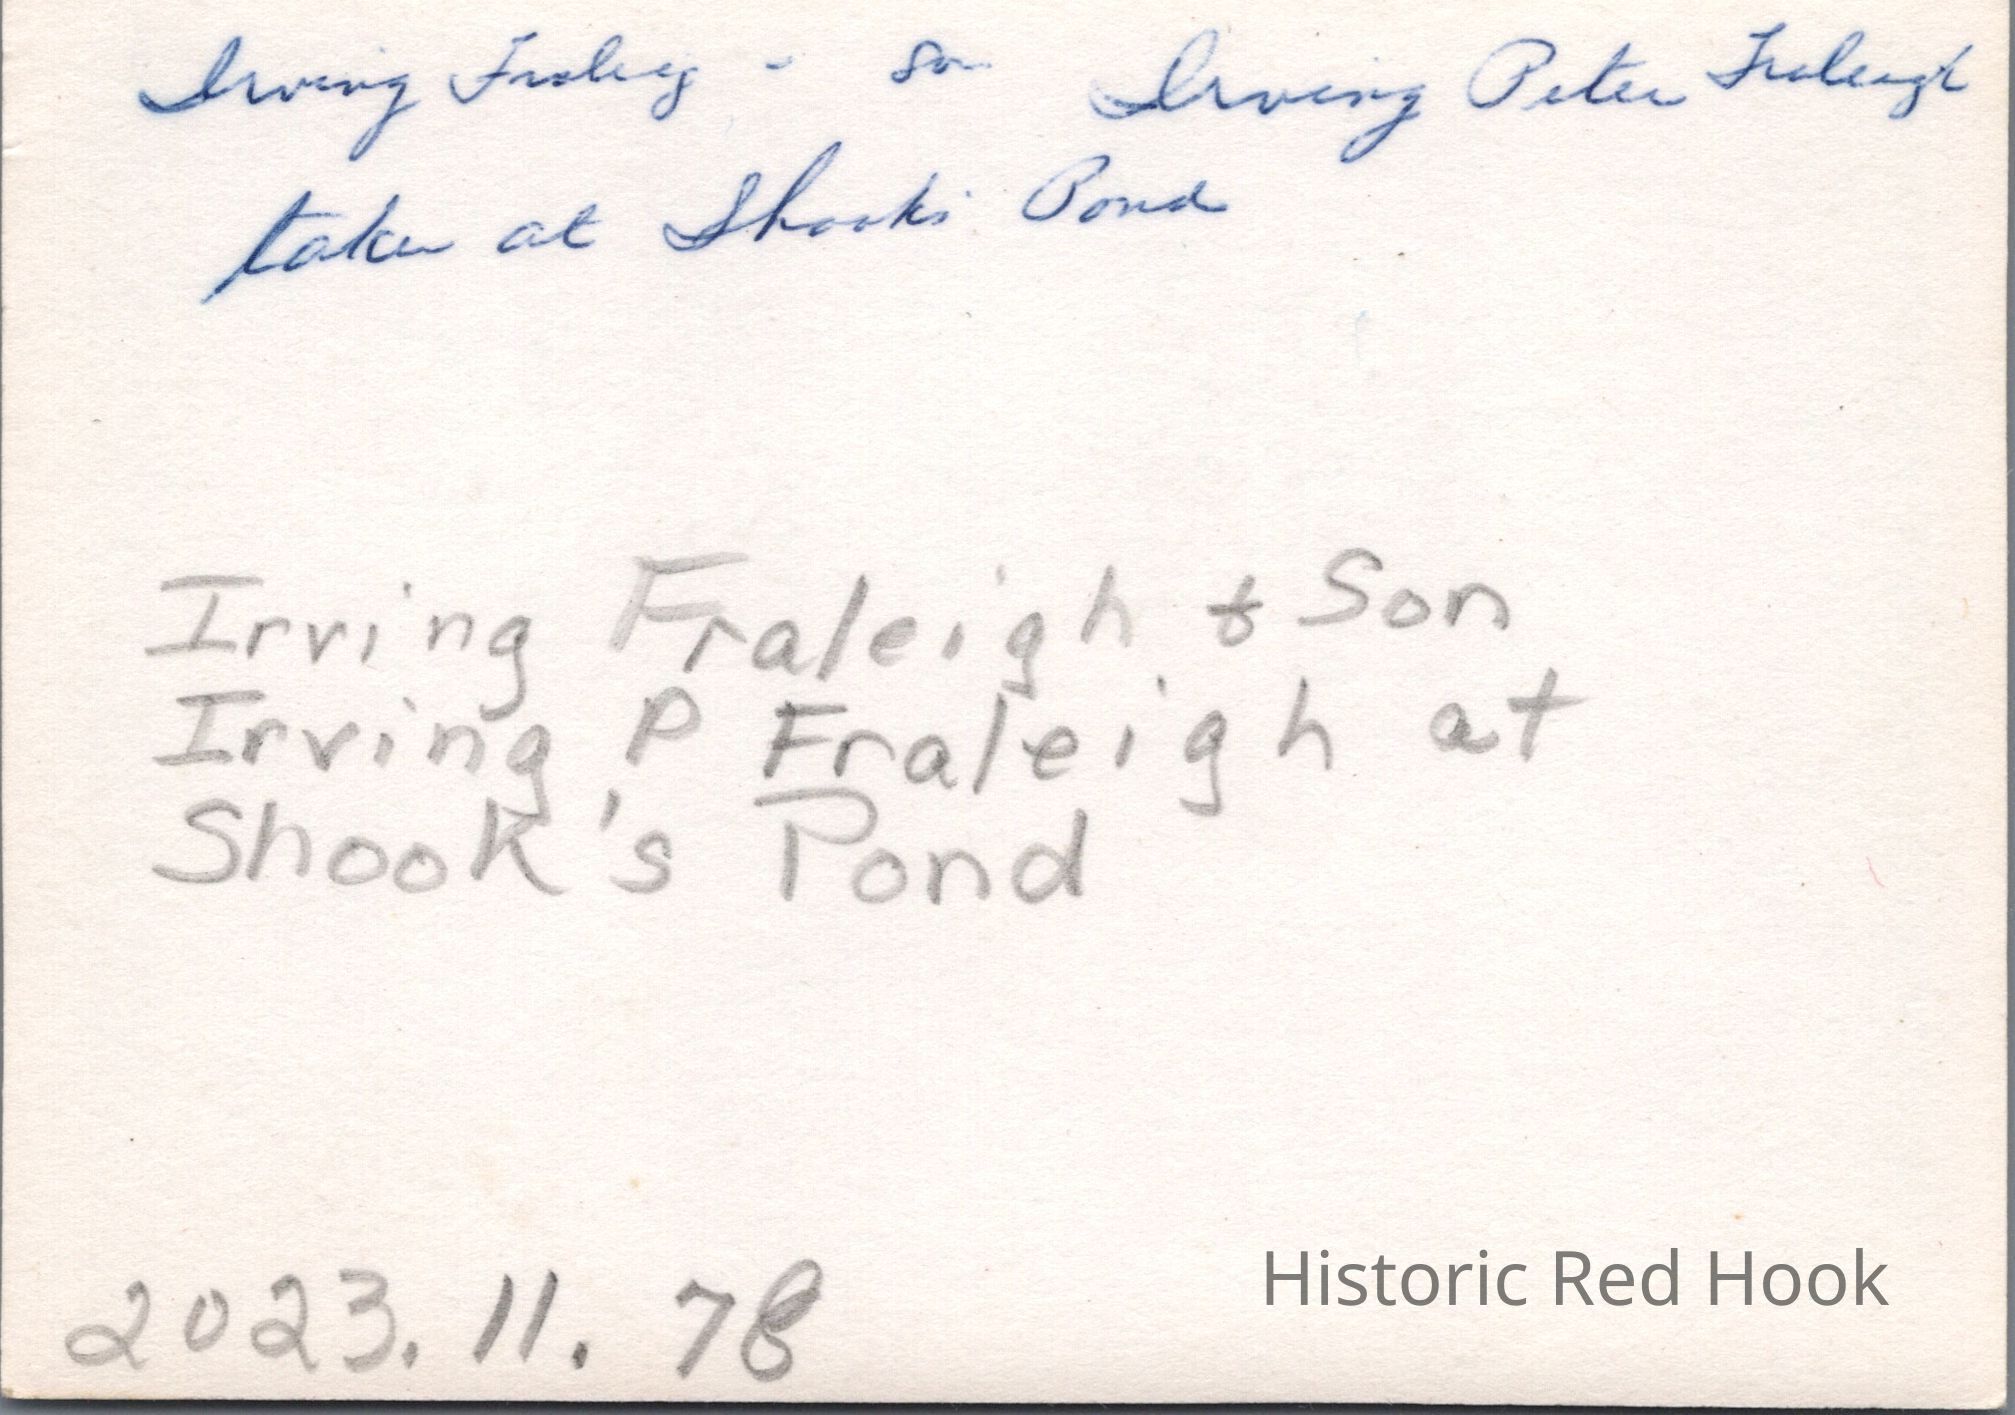 Irving Fraleig - son Irving Peter Fraleigh
taken at Shook's Pond
Irving Fraleigh & Son
Irving P Fraleigh at
Shook's Pond
2023.11.78
Historic Red Hook